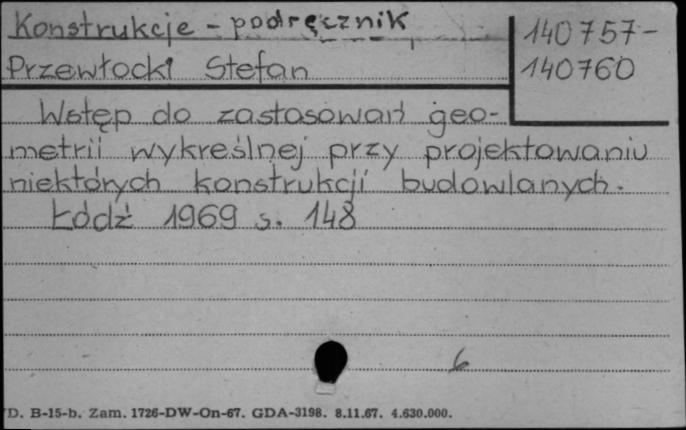 Konstrukcje - podręcznik
140757-
140760
Przewłocki Stefan
Wstęp do zastosowań geo-
metrii wykreślnej przy projektowaniu
niektórych konstrukcji budowlanych.
Łódź 1969 s. 148
6
D. B-15-b. Zam. 1726-DW-On-67. GDA-3198. 8.11.67. 4.630.000.